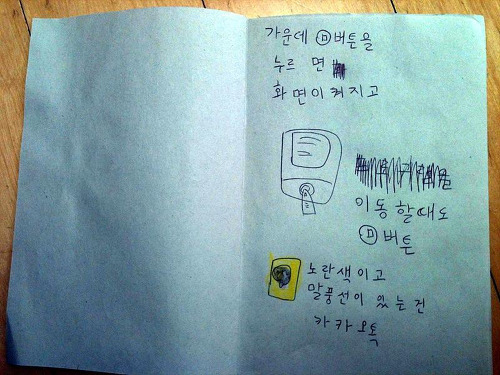 가운데 ㅁ버튼을
누르 면
화면이켜지고
이동할때도
ㅁ버튼
노란색이고
말풍선이 있는건
카카오톡